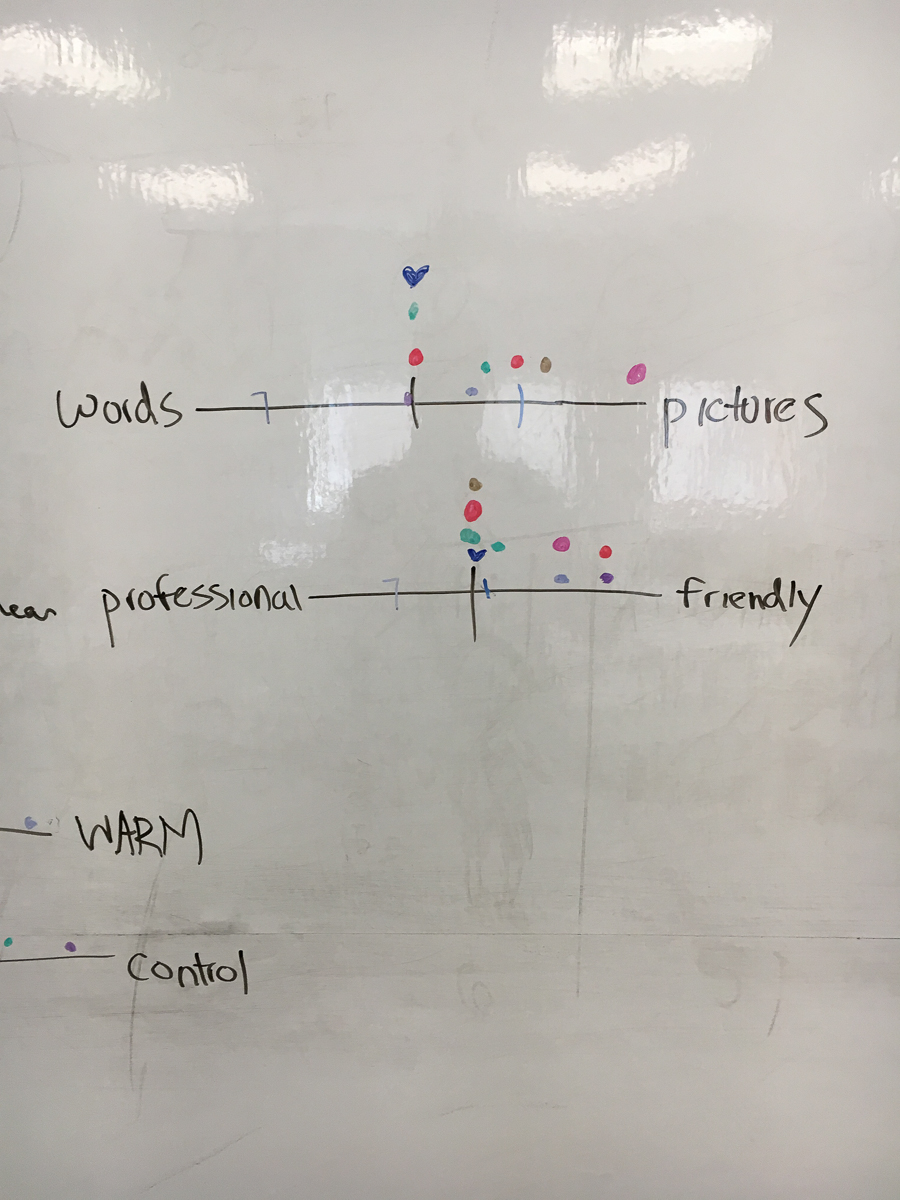 words pictures
professional friendly
WARM
control